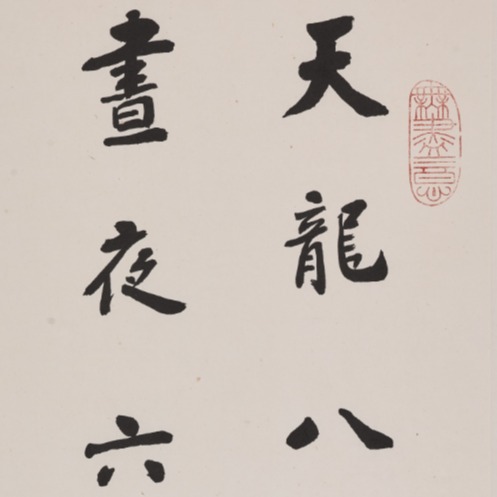 天龍八
晝夜六